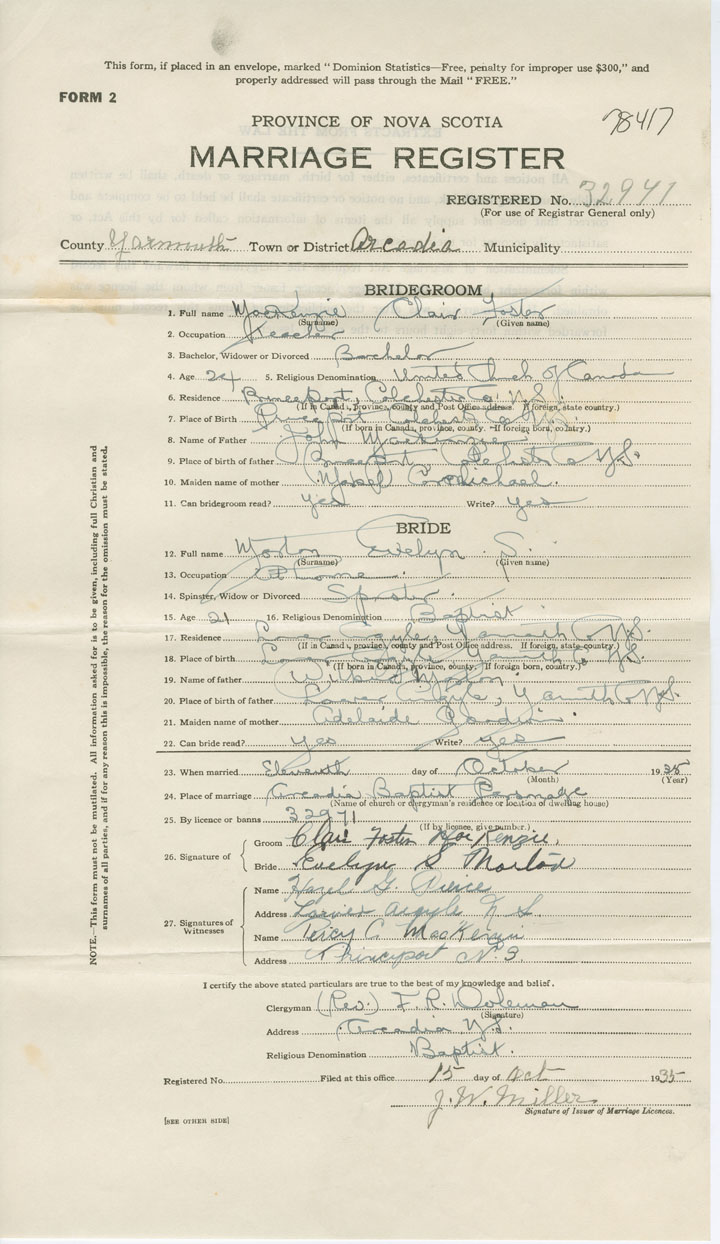 This form, if placed in an envelope, marked "Dominion Statistics—Free, penalty for improper use $300," and
properly addressed will pass through the Mail "FREE."
FORM 2
PROVINCE OF NOVA SCOTIA
78417
MARRIAGE REGISTER
REGISTERED No. 32941
(For use of Registrar General only)
County Yarmouth Town or District Arcadia Municipality
BRIDEGROOM
1. Full name MacKenzie Clair Foster
(Surname) (Given name)
2. Occupation Teacher
3. Bachelor, Widower or Divorced Bachelor
4. Age 24 5. Religious Denomination United Church of Canada
6. Residence Princeport, Colchester Co N.S.
(If in Canada, province, county and Post Office address. If foreign, state country.)
7. Place of Birth Princeport Colchester Co N.S.
(If born in Canada, province, county. If foreign born, country.)
8. Name of Father John MacKenzie
9. Place of birth of father Princeport Colchester Co N.S.
10. Maiden name of mother (Mabel) Carmichael
11. Can bridegroom read? yes Write? yes
BRIDE
12. Full name Morton Evelyn S.
(Surname) (Given name)
13. Occupation At home
14. Spinster, Widow or Divorced Spinster
15. Age 21 16. Religious Denomination Baptist
17. Residence Lower Argyle, Yarmouth Co N.S.
(If in Canada, province, county and Post Office address. If foreign, state country.)
18. Place of birth Lower Argyle Yarmouth Co N.S.
(If born in Canada, province, county. If foreign born, country.)
19. Name of father Morton
20. Place of birth of father Lower Argyle, Yarmouth Co N.S.
21. Maiden name of mother Adelaide
22. Can bride read? yes Write? yes
23. When married Eleventh day of October 1935
(Month) (Year)
24. Place of marriage Arcadia Baptist Parsonage
(Name of church or clergyman's residence or location of dwelling house)
25. By licence or banns 32971
(If by licence, give number.)
26. Signature of
Groom Clair Foster MacKenzie
Bride Evelyn S Morton
27. Signatures of Witnesses
Name Hazel G. Pierce
Address Lower Argyle N S
Name Percy C. MacKenzie
Address Princeport N.S.
I certify the above stated particulars are true to the best of my knowledge and belief.
Clergyman (Rev.) F. R. Woleman
(Signature)
Address Arcadia N.S.
Religious Denomination Baptist.
Registered No. Filed at this office 15 day of Oct 1935
J. W. Miller
Signature of Issuer of Marriage Licences.
[SEE OTHER SIDE]
NOTE.—This form must not be mutilated. All information asked for is to be given, including full Christian and
surnames of all parties, and if for any reason this is impossible, the reason for the omission must be stated.